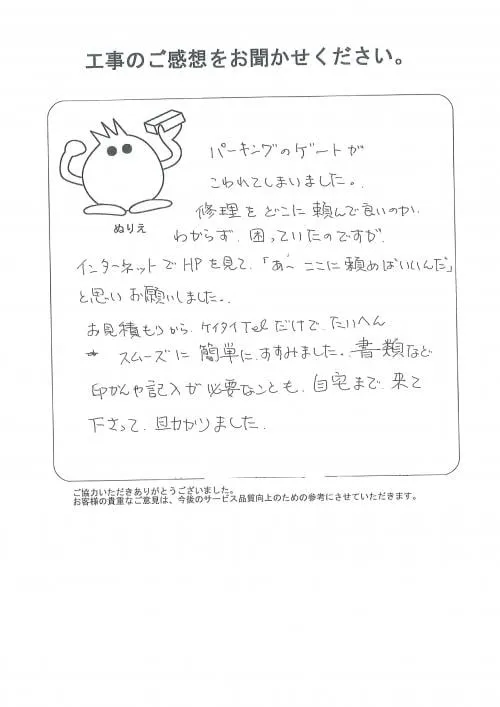 工事のご感想をお聞かせください。
パーキングのゲートが
こわれてしまいました。
修理をどこに頼んで良いのか、
ぬりえ
わからず、困っていたのですが、
インターネットでHPを見て、「あ〜ここに頼めばいいんだ」
と思いお願いしました。
お見積もりから、ケイタイTelだけで、たいへん
スムーズに簡単に、すすみました。書類など
印がんや記入が必要なことも、自宅まで来て
下さって、助かりました。
ご協力いただきありがとうございました。
お客様の貴重なご意見は、今後のサービス品質向上のための参考にさせていただきます。